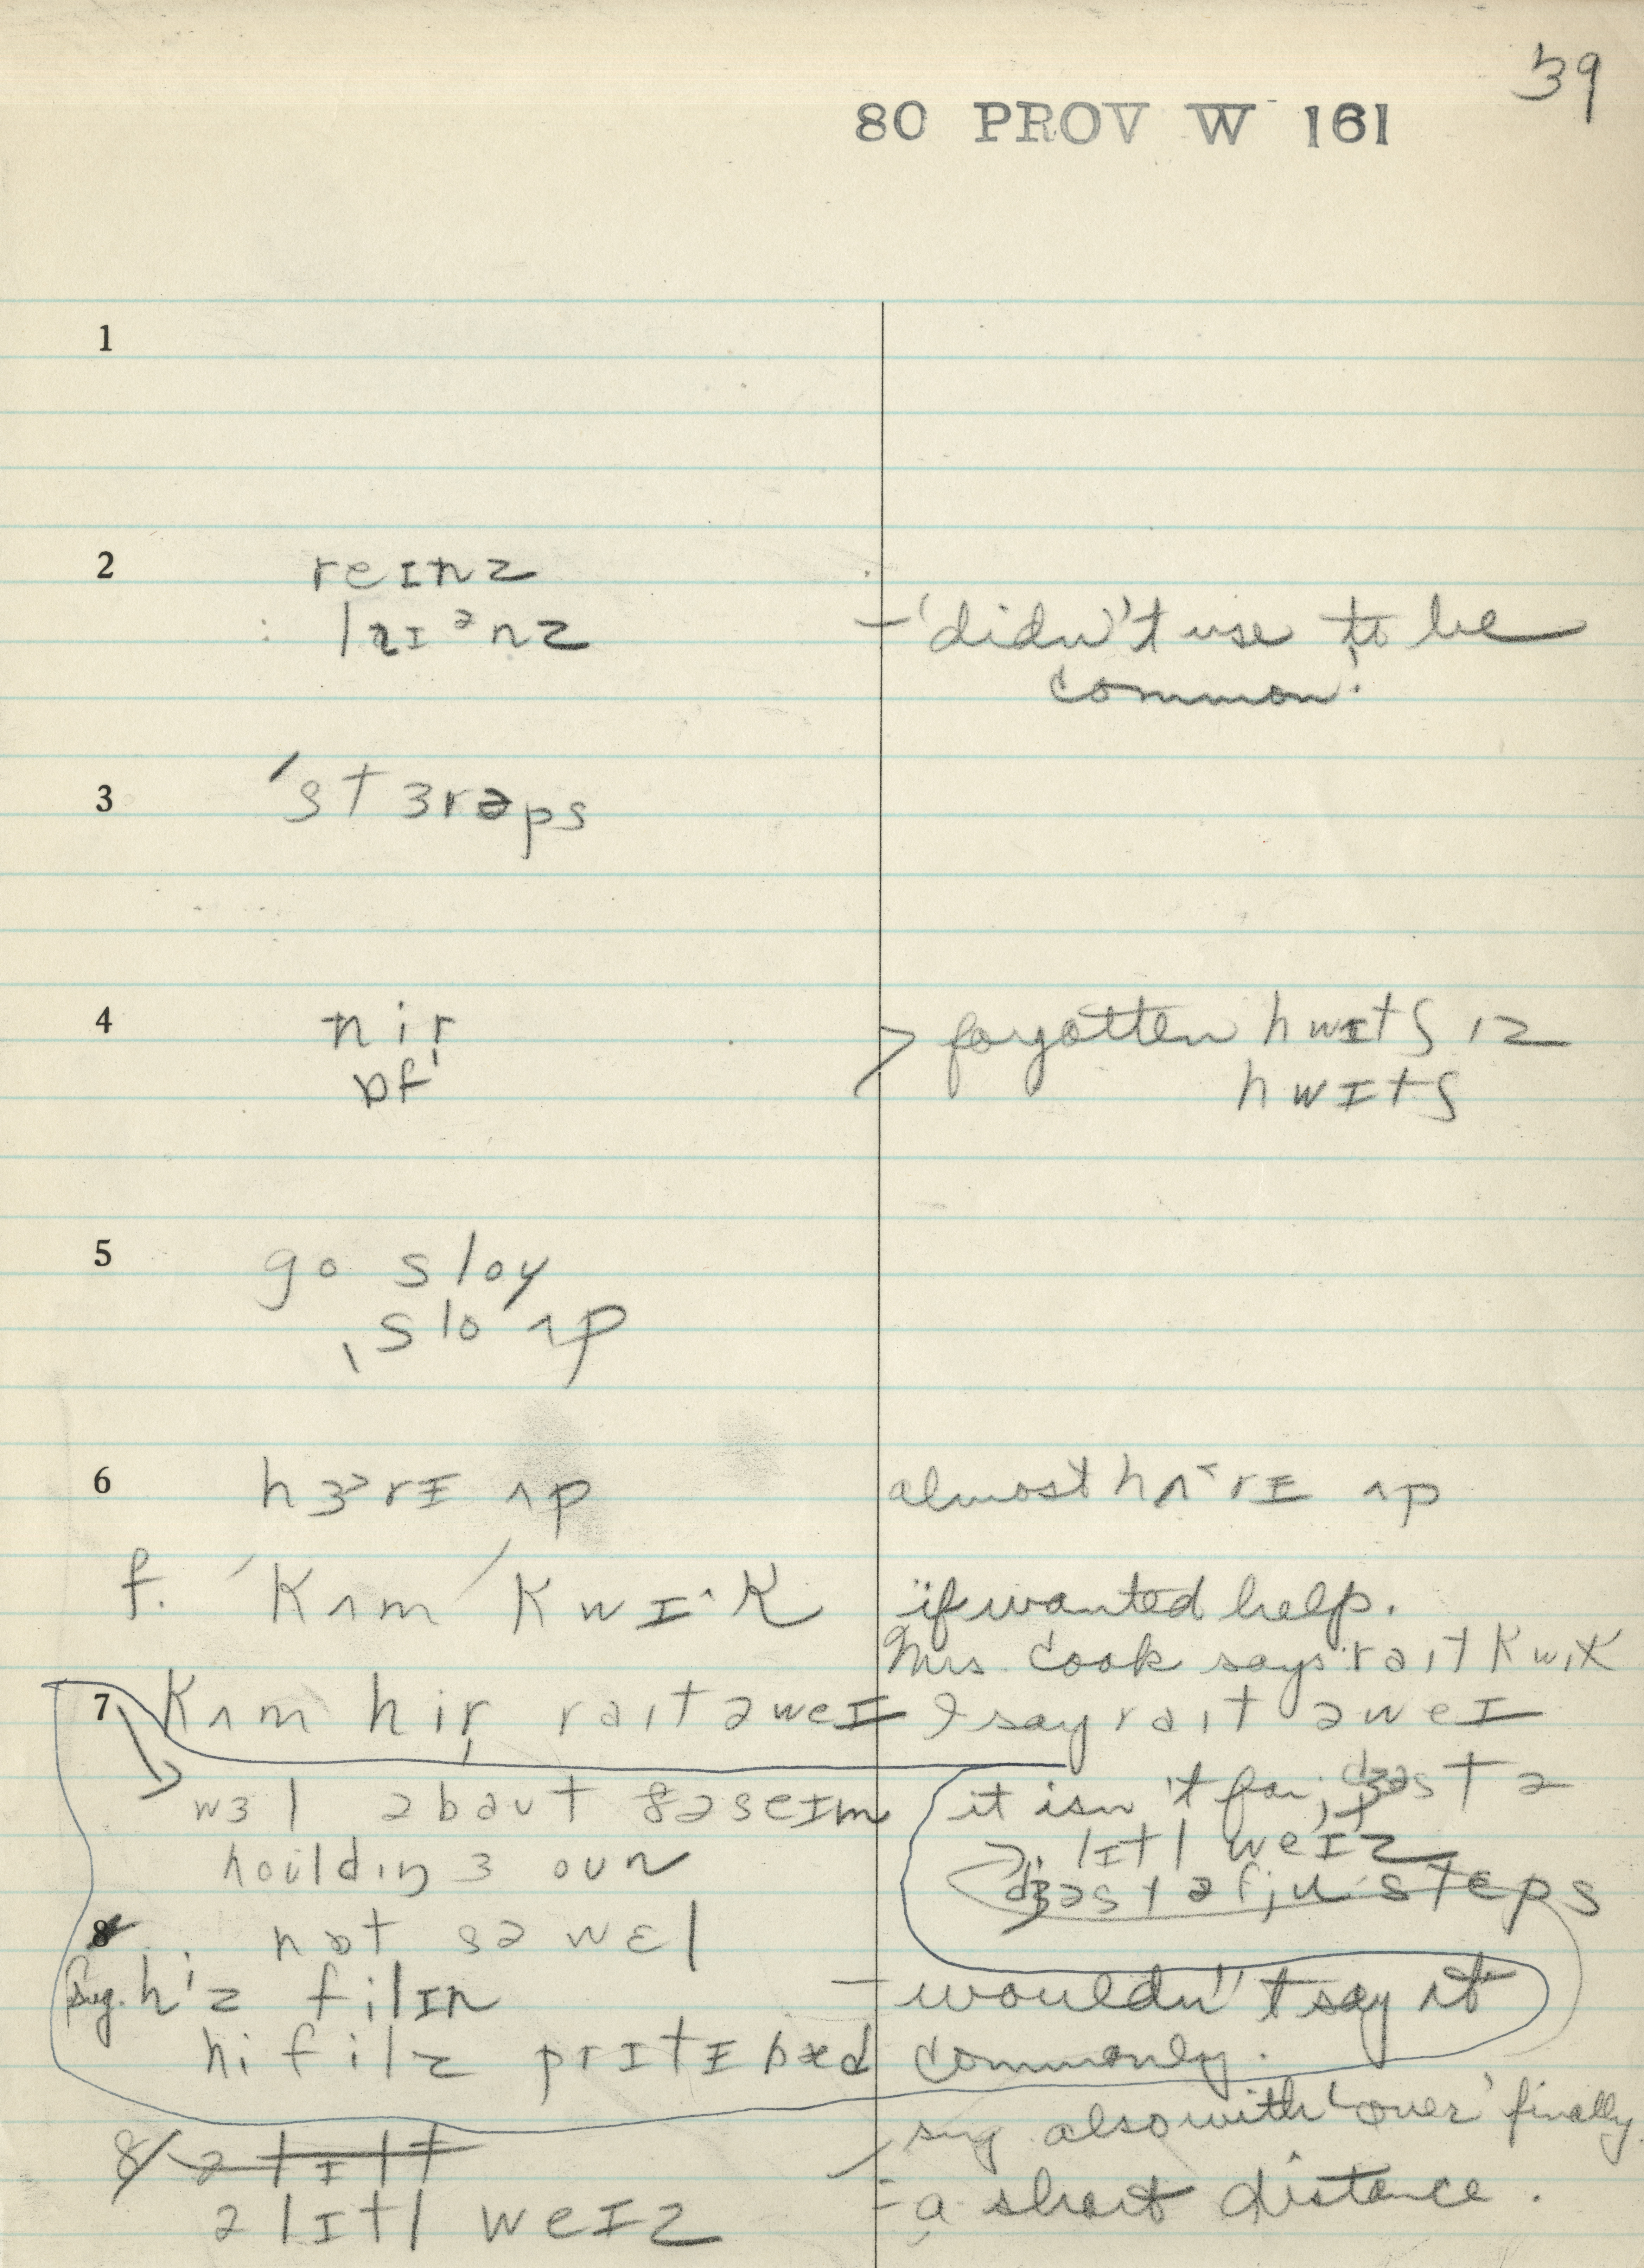 39
80 PROV W 161
1
2 reɪnz
: laɪᵊnz – 'didn't use to be
common'.
3 ˈstɜrəps
4 nir̩
ɒf > forgotten hwɪtʃ ɪz
hwɪtʃ
5 go sloʊ
ˌslo ʌp
6 hɜ˃rɪ ʌp almost hʌ˂rɪ ʌp
f. ˈkʌm ˈkwɪ˄k if wanted help.
Mrs. Cook says raɪt kwɪk
7 kʌm hir̩ raɪt əweɪ I say raɪt əweɪ
wɜl əbaut ðə seɪm it isn't far, dʒəst ə
lɪtl weɪz
houldɪŋ ɜ oun
dʒəst ə fju steps
8 nɒt sə wɛl
sug. hiz filɪn – wouldn't say it
hi filz prɪtɪ bæd commonly.
sug also with 'over' finally
8/
ə lɪtl weɪz = a short distance.